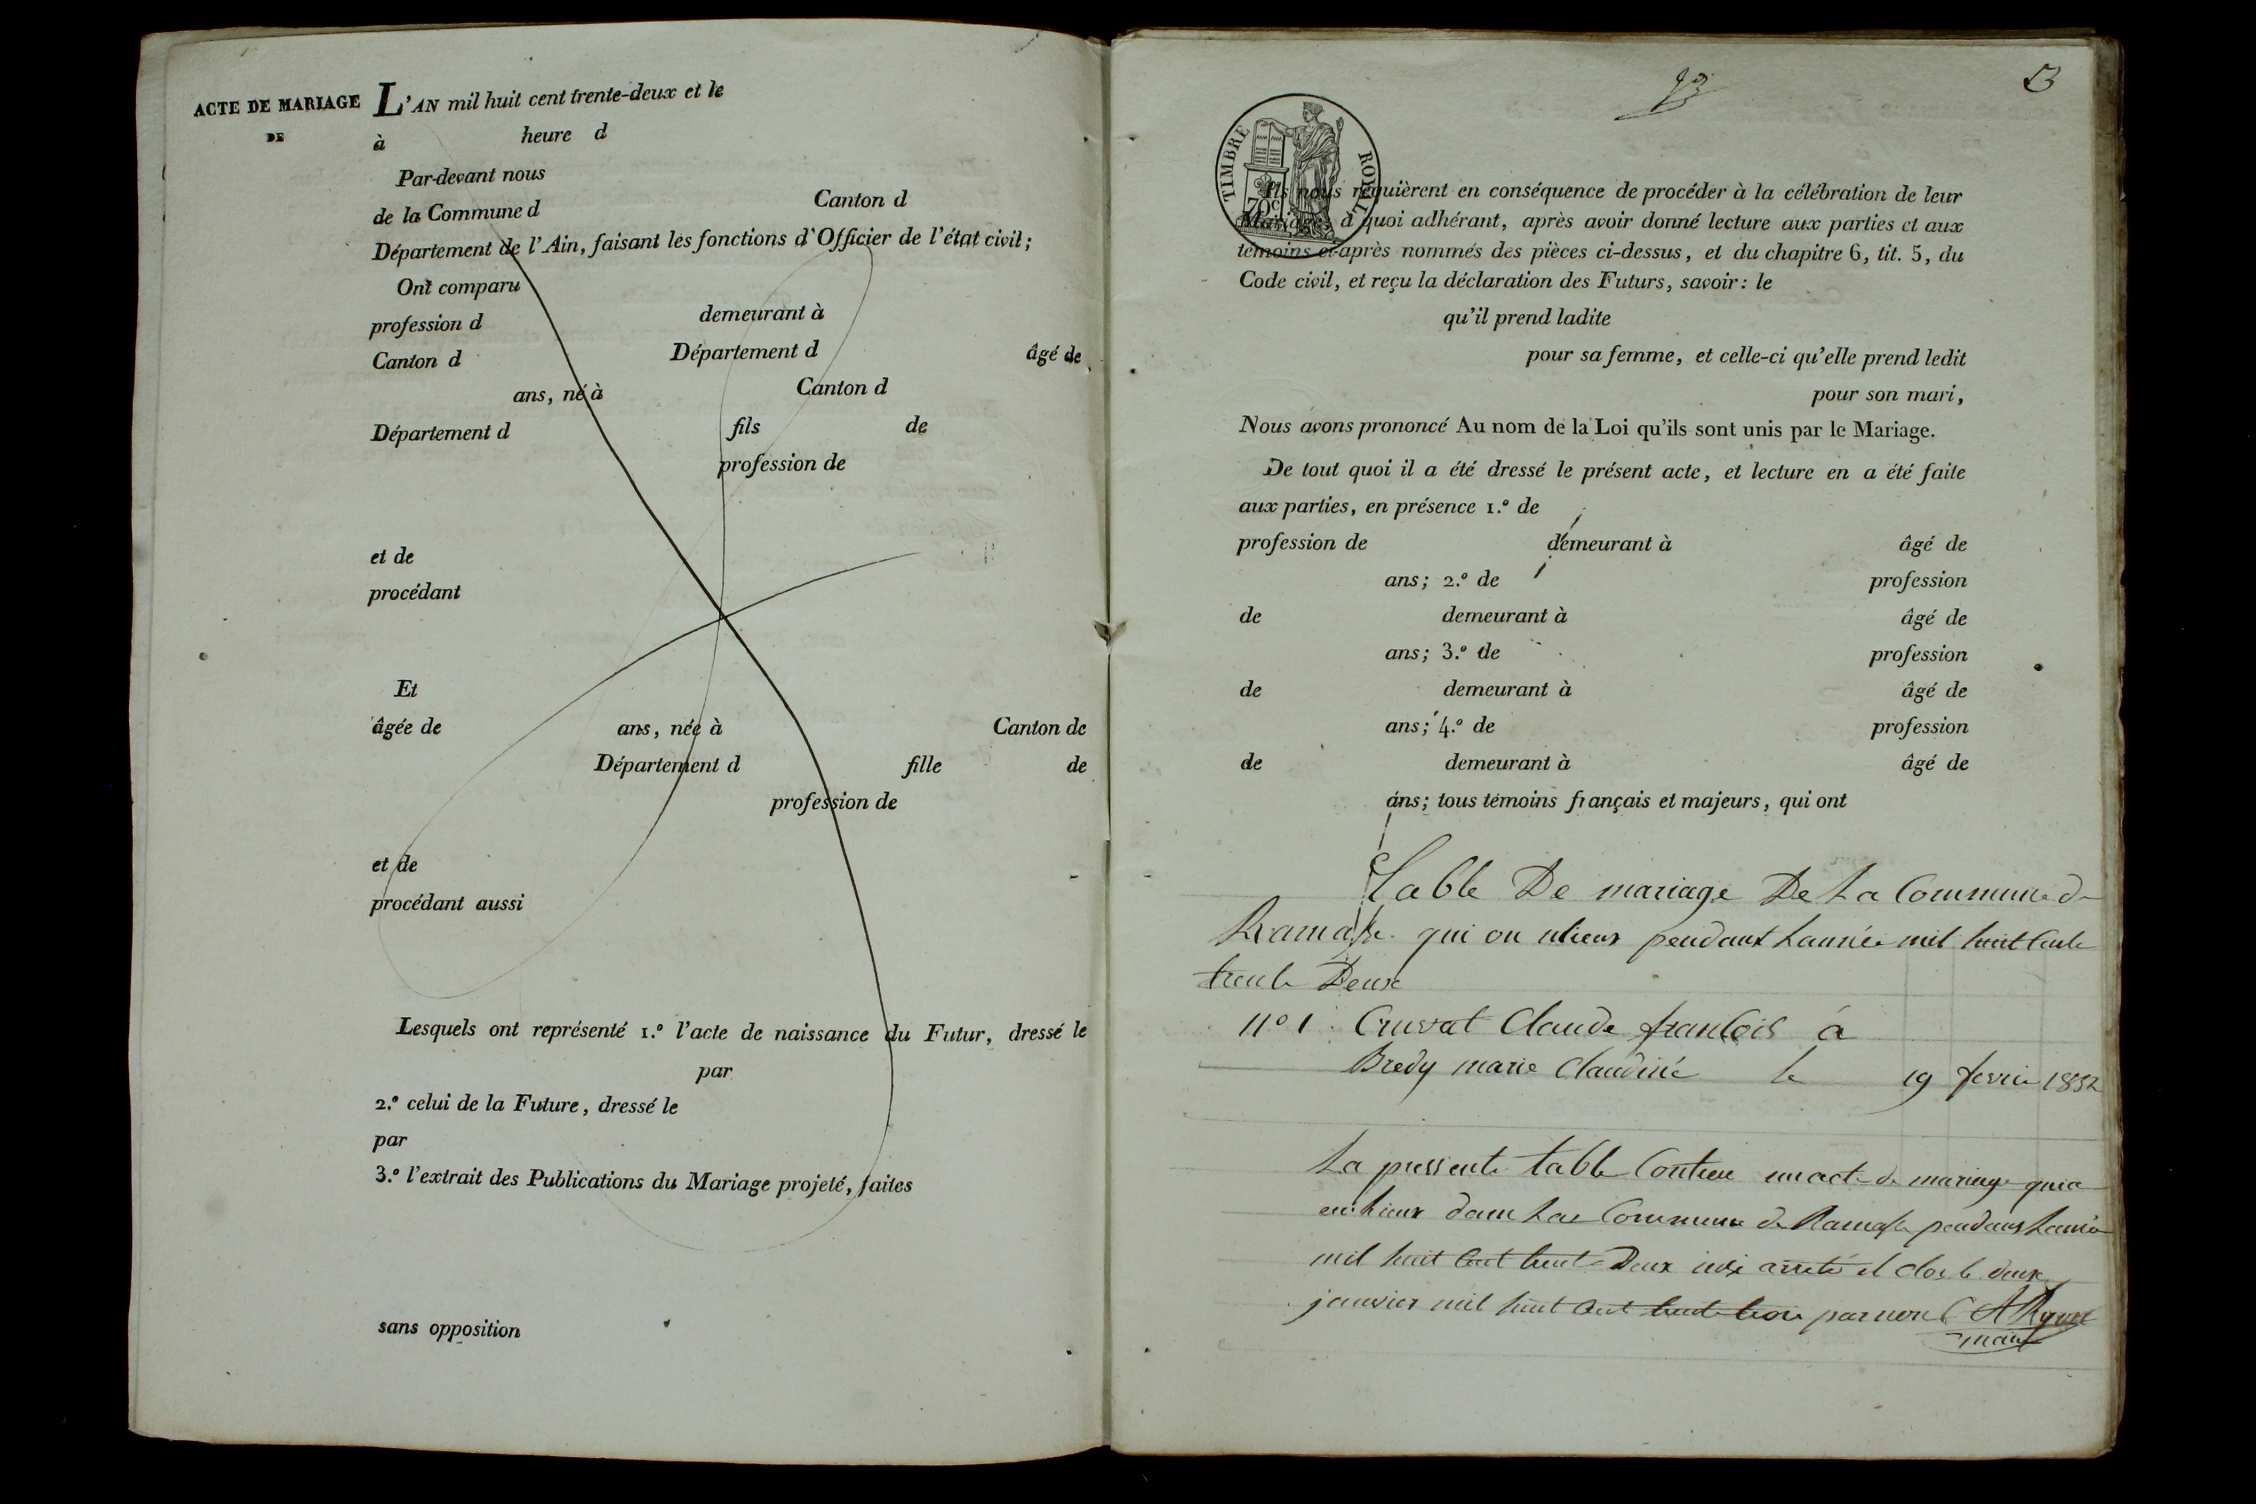 ACTE DE MARIAGE
DE
L'AN mil huit cent trente-deux et le
à heure d
Par-devant nous
de la Commune d Canton d
Département de l'Ain, faisant les fonctions d'Officier de l'état civil;
Ont comparu
profession d demeurant à
Canton d Département d âgé de
ans, né à Canton d
Département d fils de
profession de
et de
procédant
Et
âgée de ans, née à Canton de
Département d fille de
profession de
et de
procédant aussi
Lesquels ont représenté 1.º l'acte de naissance du Futur, dressé le
par
2.º celui de la Future, dressé le
par
3.º l'extrait des Publications du Mariage projeté, faites
sans opposition
TIMBRE ROYAL
70c
Ils nous requièrent en conséquence de procéder à la célébration de leur
Mariage; à quoi adhérant, après avoir donné lecture aux parties et aux
témoins ci-après nommés des pièces ci-dessus, et du chapitre 6, tit. 5, du
Code civil, et reçu la déclaration des Futurs, savoir: le
qu'il prend ladite
pour sa femme, et celle-ci qu'elle prend ledit
pour son mari,
Nous avons prononcé Au nom de la Loi qu'ils sont unis par le Mariage.
De tout quoi il a été dressé le présent acte, et lecture en a été faite
aux parties, en présence 1.º de
profession de demeurant à âgé de
ans; 2.º de profession
de demeurant à âgé de
ans; 3.º de profession
de demeurant à âgé de
ans; 4.º de profession
de demeurant à âgé de
ans; tous témoins français et majeurs, qui ont
Table De mariage De La Commune de
Ramasse qui on pendant Lannée mil huit Cent
trente Deux
nº 1 Cruvat Claude franCois à
Bredy marie Claudine le 19 fevrie 1832
La pressente table Contien un acte de mariage qui a
eu Lieux dans La Commune de Ramasse pendans Lannée
mil huit Cent trente Deux arreté et clos le deux
janvier mil huit Cent trente trois par nous
maire